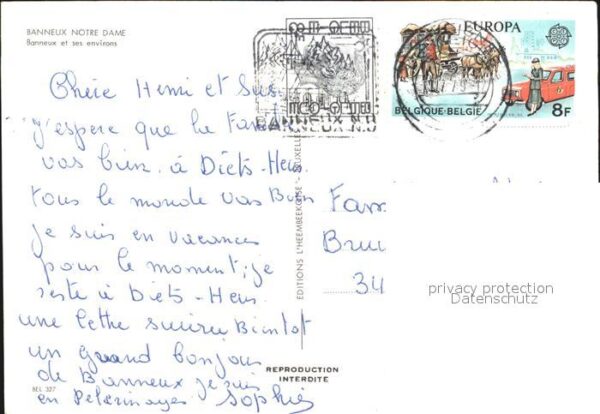 BANNEUX NOTRE DAME
Banneux et ses environs
Chère Henri et Sus
j'espère que la Fam
vas bien. à Diets-Heus
tous le monde vas Bien
je suis en vacances
pour le moment; je
reste à Diets-Heus.
une lettre suivra Bientot
un grand bonjour
de Banneux je suis
en Pélerinages Sophie
BEL 327
EDITIONS L'HEEMBEEKOISE - BRUXELLES
REPRODUCTION
INTERDITE
BANNEUX N.D
EUROPA
BELGIQUE-BELGIE
8F
Fass
Bruu
34
privacy protection
Datenschutz